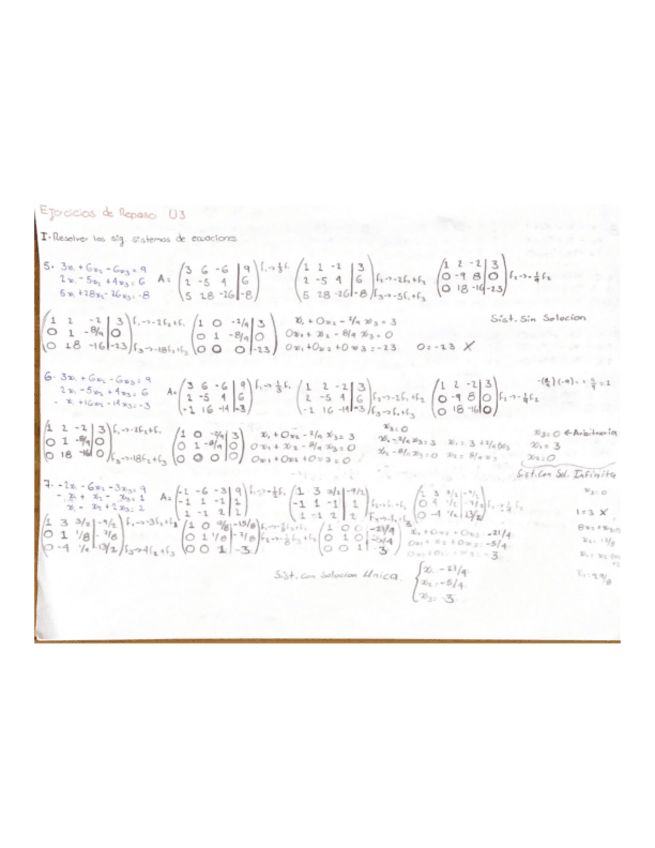 Ejercicios de Repaso U3
I. Resolver los sig. sistemas de ecuaciones
5. 3x₁ + 6x₂ - 6x₃ = 9
2x₁ - 5x₂ + 4x₃ = 6
5x₁ + 28x₂ - 26x₃ = -8
A = (3 6 -6 | 9
2 -5 4 | 6
5 28 -26 | -8) f₁→⅓f₁
(1 2 -2 | 3
2 -5 4 | 6
5 28 -26 | -8) f₂→-2f₁+f₂
f₃→-5f₁+f₃
(1 2 -2 | 3
0 -9 8 | 0
0 18 -16 | -23) f₂→-1/9 f₂
(1 2 -2 | 3
0 1 -8/9 | 0
0 18 -16 | -23) f₁→-2f₂+f₁
f₃→-18f₂+f₃
(1 0 -2/9 | 3
0 1 -8/9 | 0
0 0 0 | -23)
x₁ + 0x₂ - 2/9 x₃ = 3
0x₁ + x₂ - 8/9 x₃ = 0
0x₁ + 0x₂ + 0x₃ = -23 0 = -23 X
Sist. Sin Solucion
6. 3x₁ + 6x₂ - 6x₃ = 9
2x₁ - 5x₂ + 4x₃ = 6
-x₁ + 16x₂ - 14x₃ = -3
A = (3 6 -6 | 9
2 -5 4 | 6
-1 16 -14 | -3) f₁→⅓f₁
(1 2 -2 | 3
2 -5 4 | 6
-1 16 -14 | -3) f₂→-2f₁+f₂
f₃→f₁+f₃
(1 2 -2 | 3
0 -9 8 | 0
0 18 -16 | 0) f₂→-1/9 f₂
(1 2 -2 | 3
0 1 -8/9 | 0
0 18 -16 | 0) f₁→-2f₂+f₁
f₃→-18f₂+f₃
(1 0 -2/9 | 3
0 1 -8/9 | 0
0 0 0 | 0)
x₁ + 0x₂ - 2/9 x₃ = 3
0x₁ + x₂ - 8/9 x₃ = 0
0x₁ + 0x₂ + 0x₃ = 0
x₃ = 0
x₁ - 2/9 x₃ = 3
x₂ - 8/9 x₃ = 0
x₂ = 8/9 x₃
x₃ = 0 ← Arbitraria
x₁ = 3
x₂ = 0
Sist. Con Sol. Infinita
7. -2x₁ - 6x₂ - 3x₃ = 9
-x₁ + x₂ - x₃ = 1
x₁ - x₂ + 2x₃ = 2
A = (-2 -6 -3 | 9
-1 1 -1 | 1
1 -1 2 | 2) f₁→-½f₁
(1 3 3/2 | -9/2
-1 1 -1 | 1
1 -1 2 | 2)
(1 3 3/2 | -9/2
(1 3 3/2 | -9/2
0 1 1/8 | -7/8
f₁→-3f₂+f₁
f₃→4f₂+f₃
(1 0 9/8 | -15/8
0 1 1/8 | -7/8
0 0 1 | 3)
(1 0 0 | -21/4
0 1 0 | -5/4
0 0 1 | 3)
x₁ + 0x₂ + 0x₃ = -21/4
0x₁ + x₂ + 0x₃ = -5/4
x₃ = 0
1 = 3 X
Sist. Con Solucion Unica.
{x₁ = -21/4
x₂ = -5/4
x₃ = 3